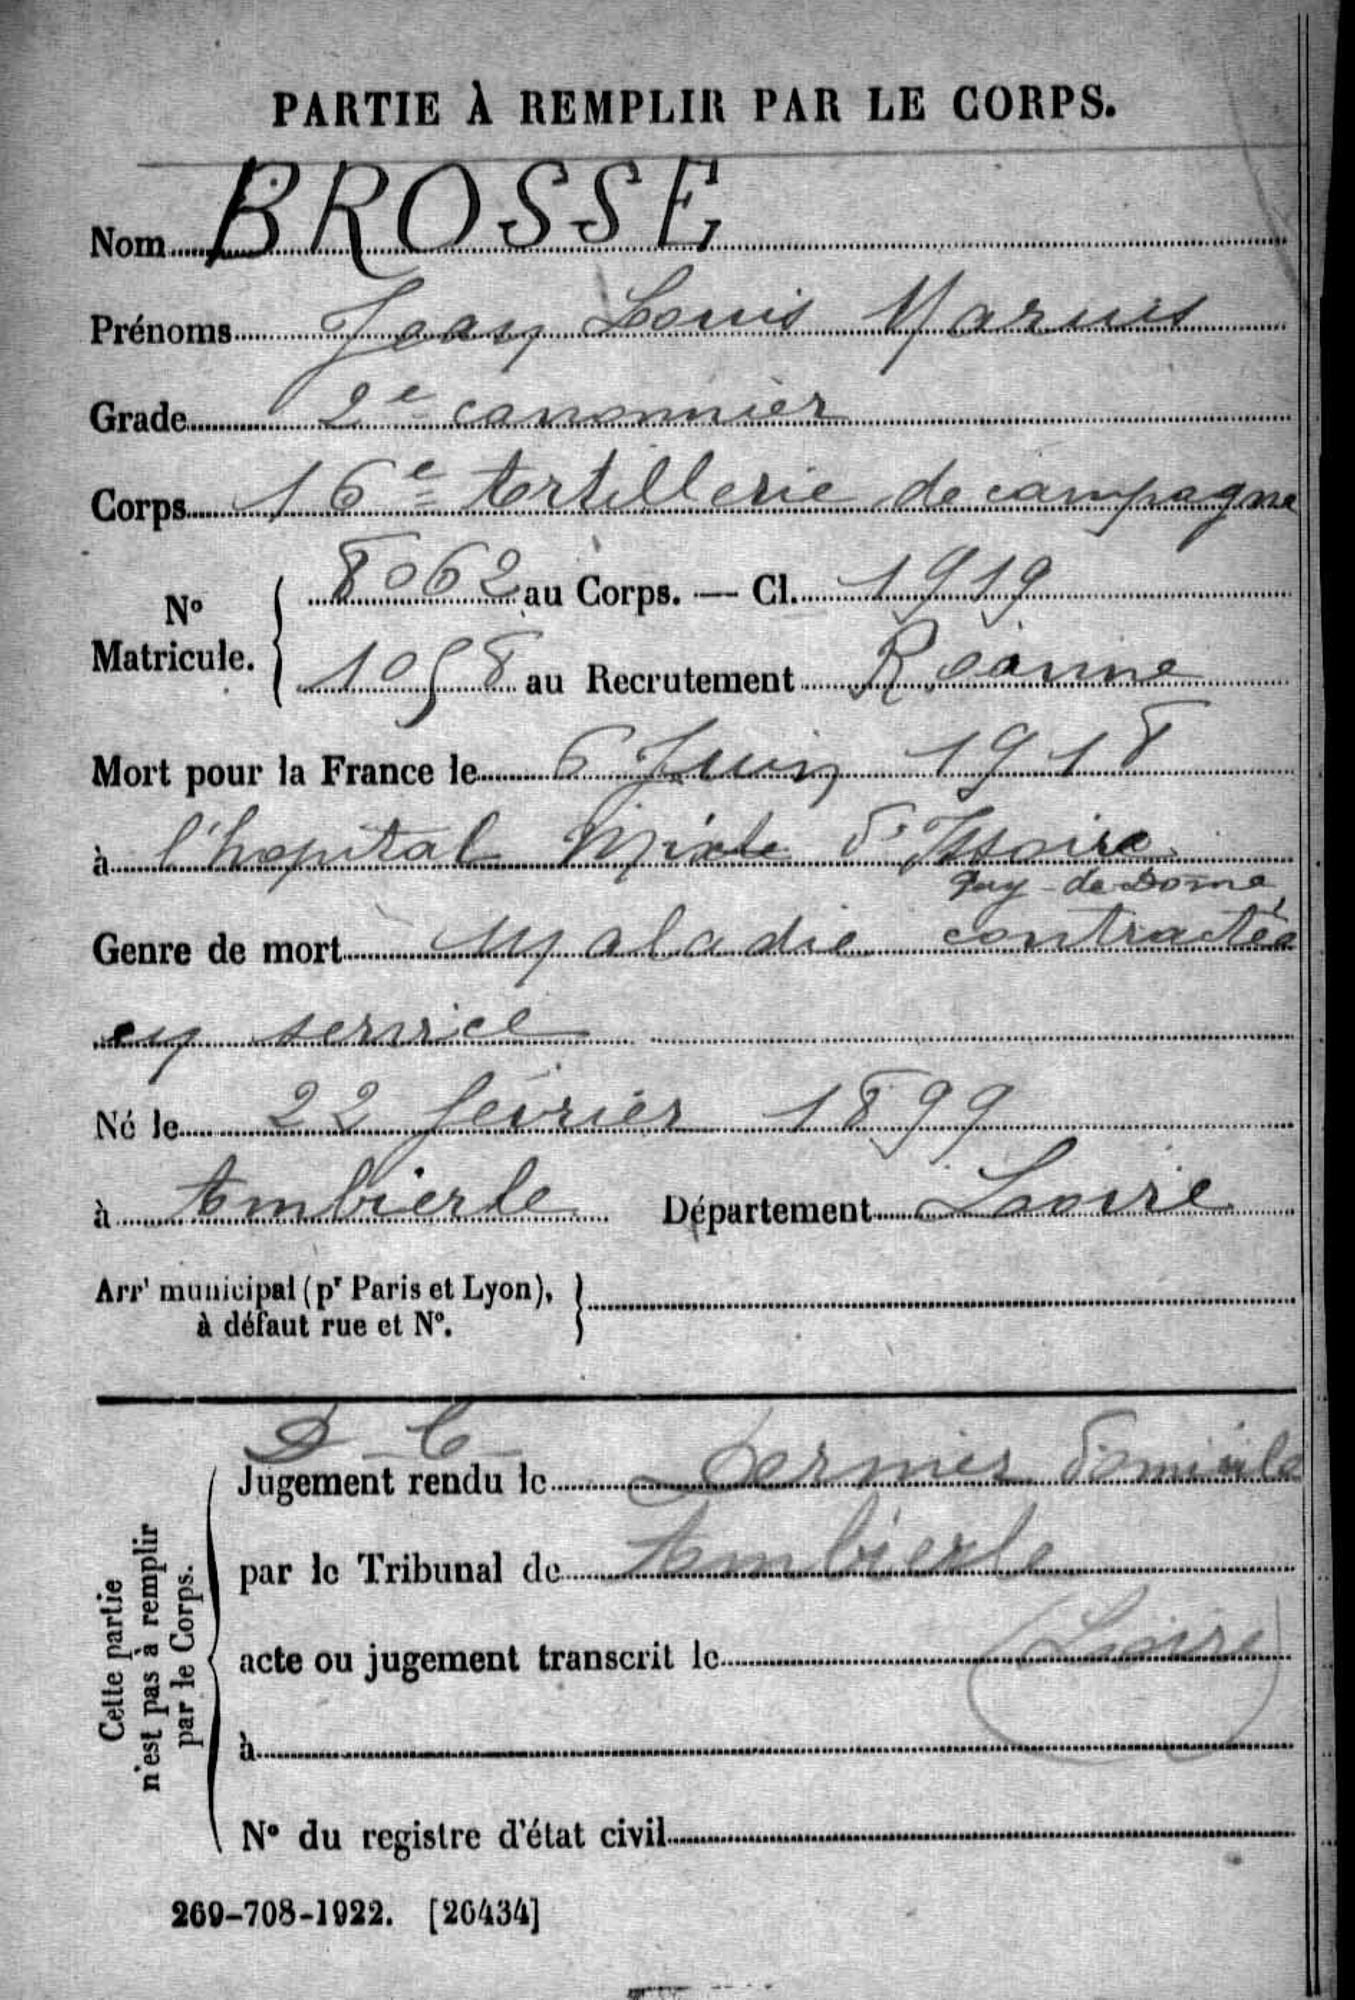 PARTIE À REMPLIR PAR LE CORPS.
Nom BROSSE
Prénoms Jean Louis Marius
Grade 2e canonnier
Corps 16e Artillerie de campagne
No Matricule. { 8062 au Corps. — Cl. 1919
1058 au Recrutement Roanne
Mort pour la France le 6 Juin 1918
à l'hopital Mixte d'Issoire
Puy-de-Dome
Genre de mort Maladie contractée
en service
Né le 22 février 1899
à Ambierle Département Loire
Arrt municipal (pr Paris et Lyon),
à défaut rue et N°.
D C
Jugement rendu le Dernier domicile
par le Tribunal de Ambierle
acte ou jugement transcrit le (Loire)
à
N° du registre d'état civil
Cette partie
n'est pas à remplir
par le Corps.
269-708-1922. [26434]